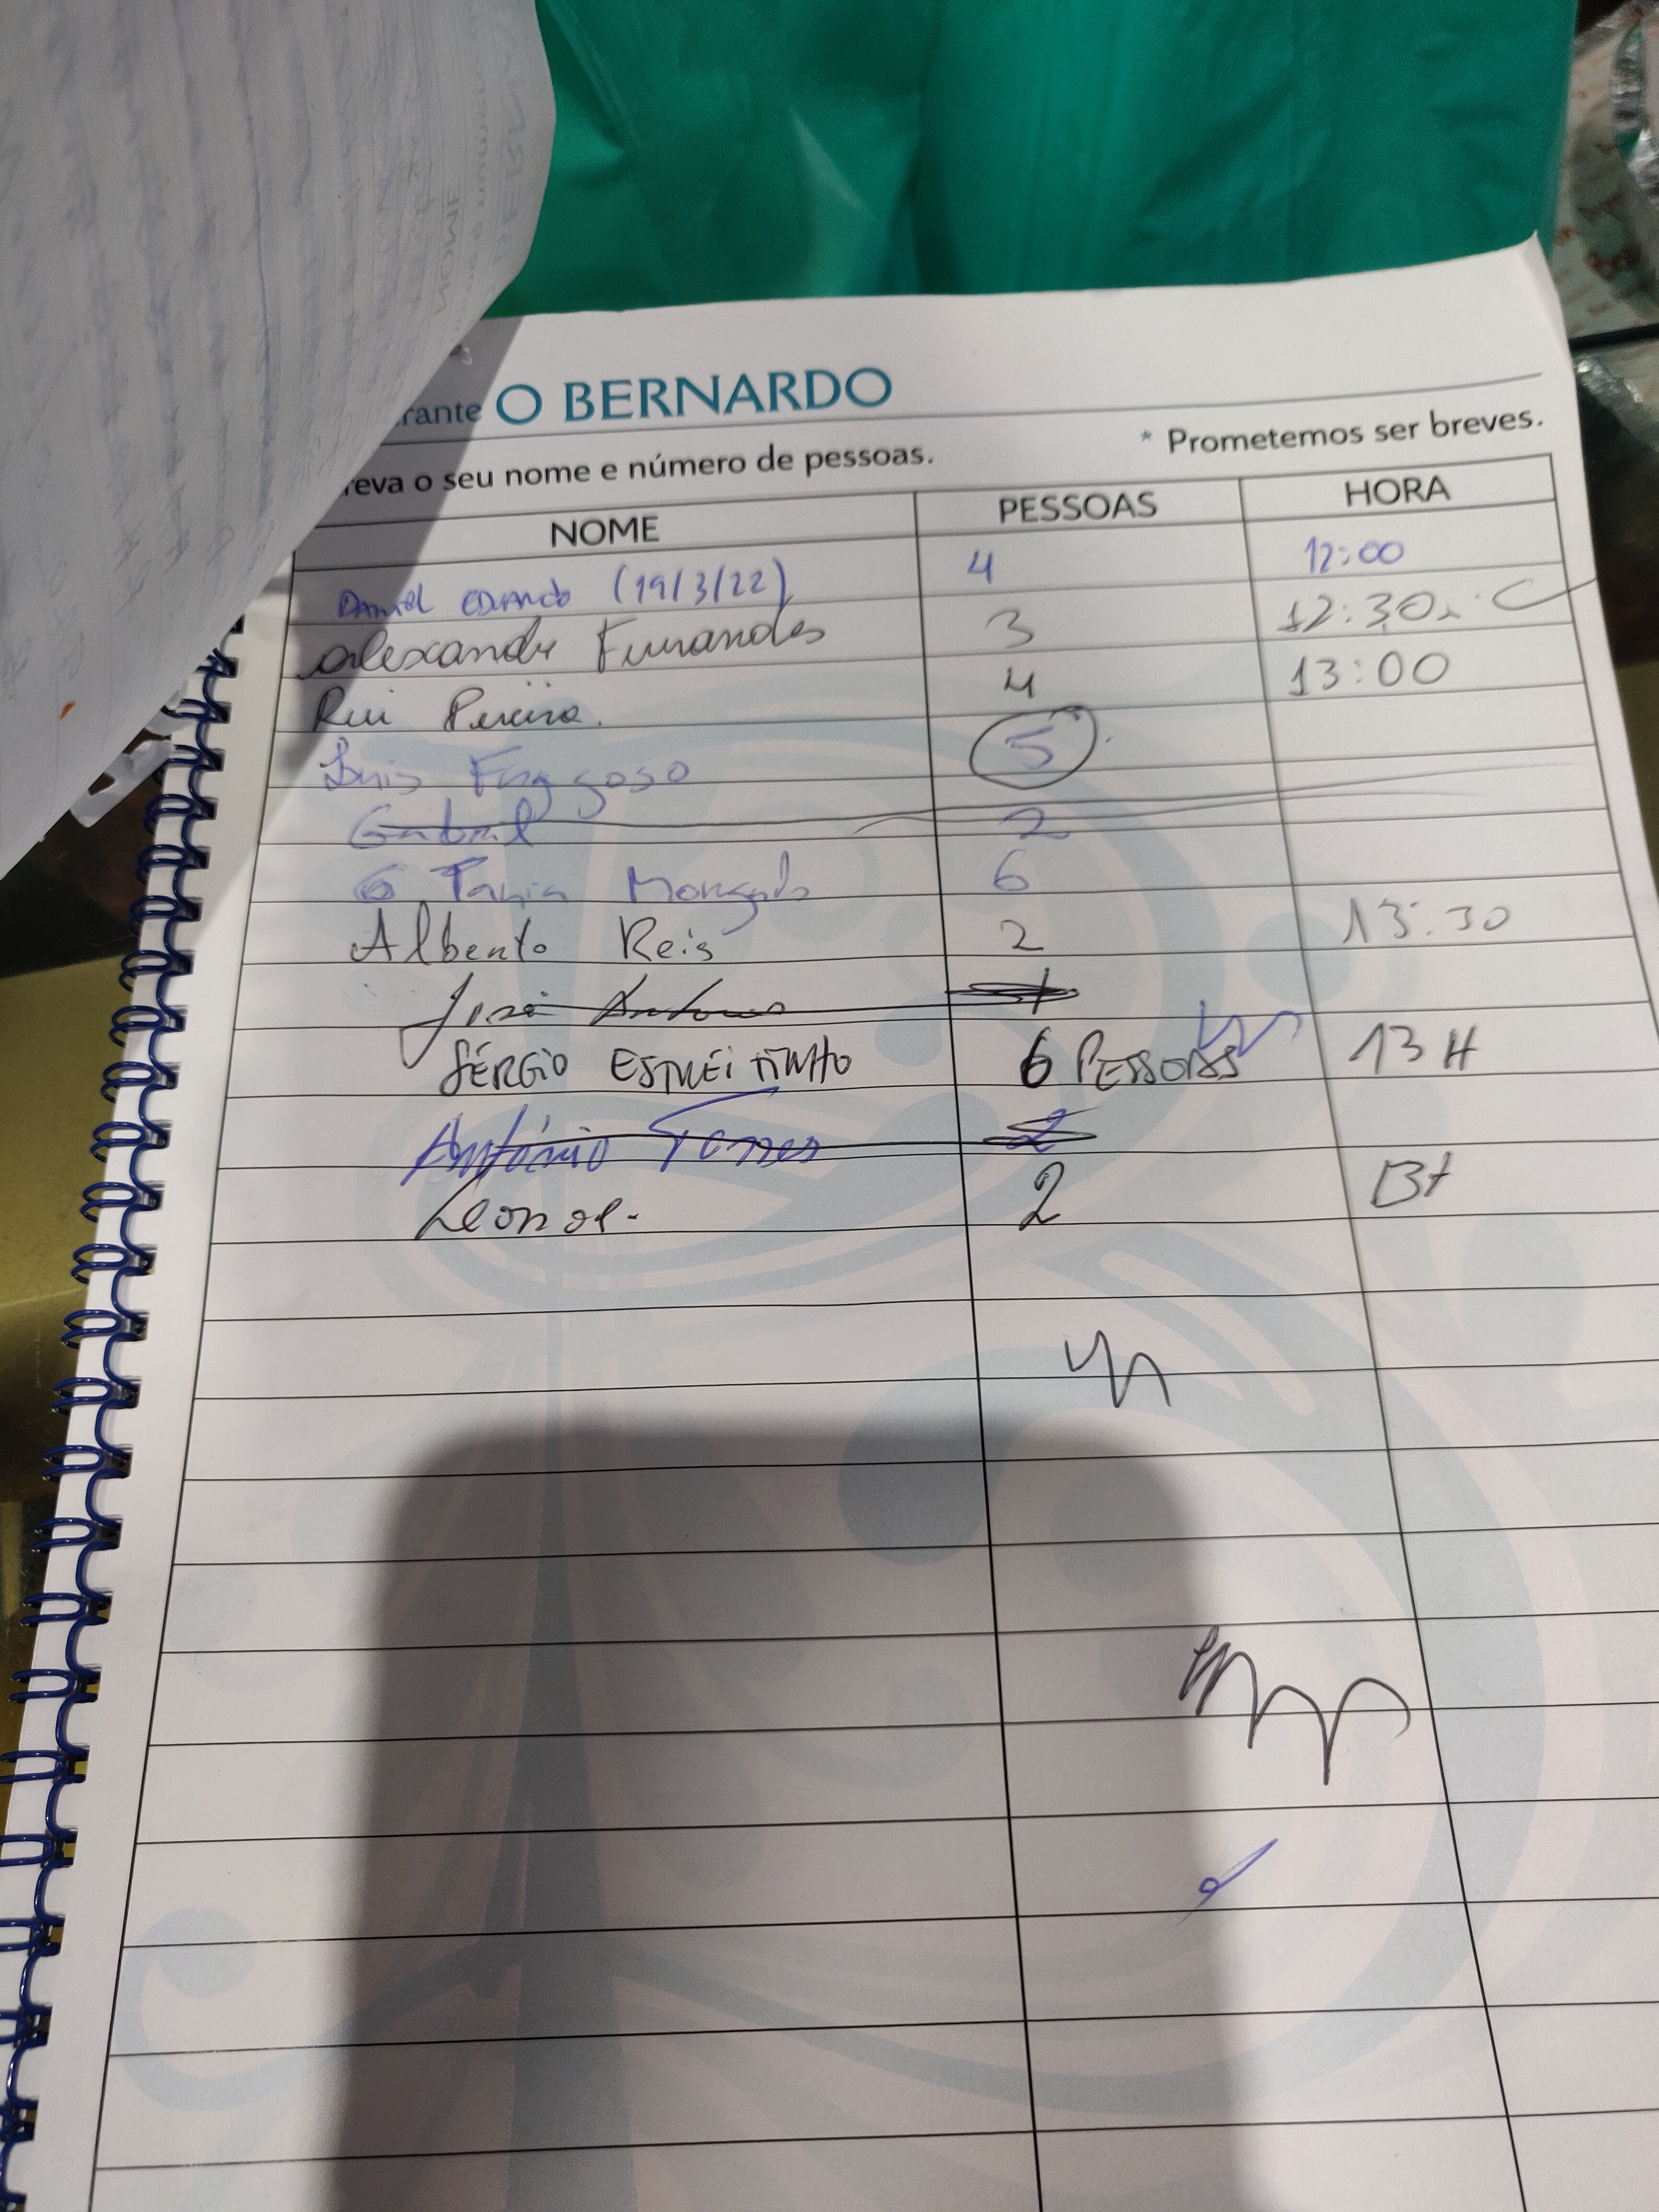 rante O BERNARDO
reva o seu nome e número de pessoas. * Prometemos ser breves.
NOME PESSOAS HORA
Daniel Eduardo (19/3/22) 4 12:00
Alexandre Fernandes 3 12:30
Rui Pereira. 4 13:00
Luis Fragoso 5
Gabriel 2
6 Tania 6
Alberto Reis 2 13:30
José Antonio
SÉRGIO ESTREITINHO 6 PESSOAS 13 H
António Torres 2
Leonor. 2 13H